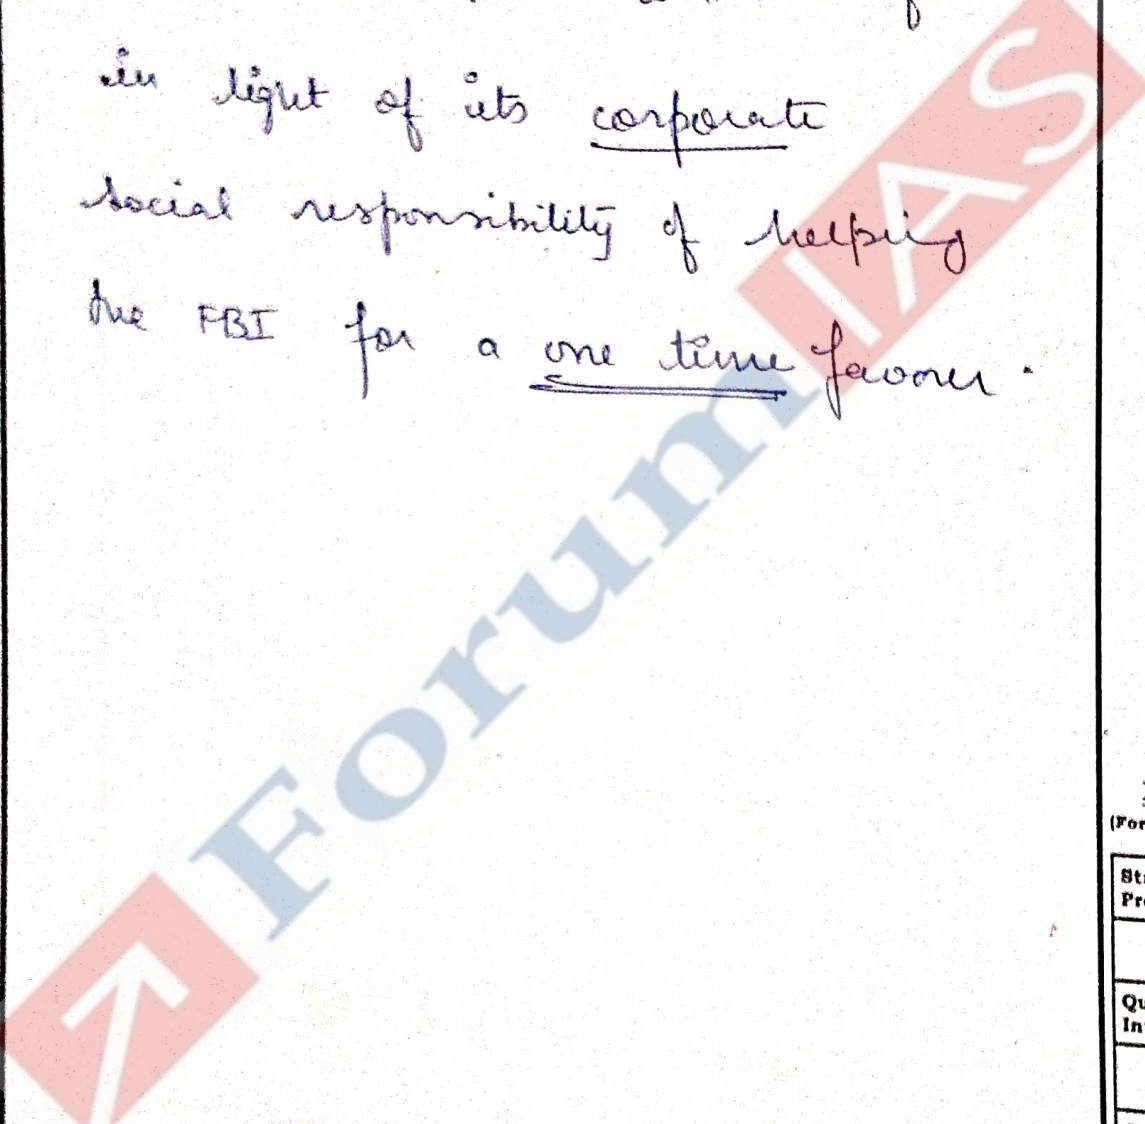 in light of its corporate
social responsibility of helping
the FBI for a one time favour.
ForumIAS
(For
St
Pr
Qu
In